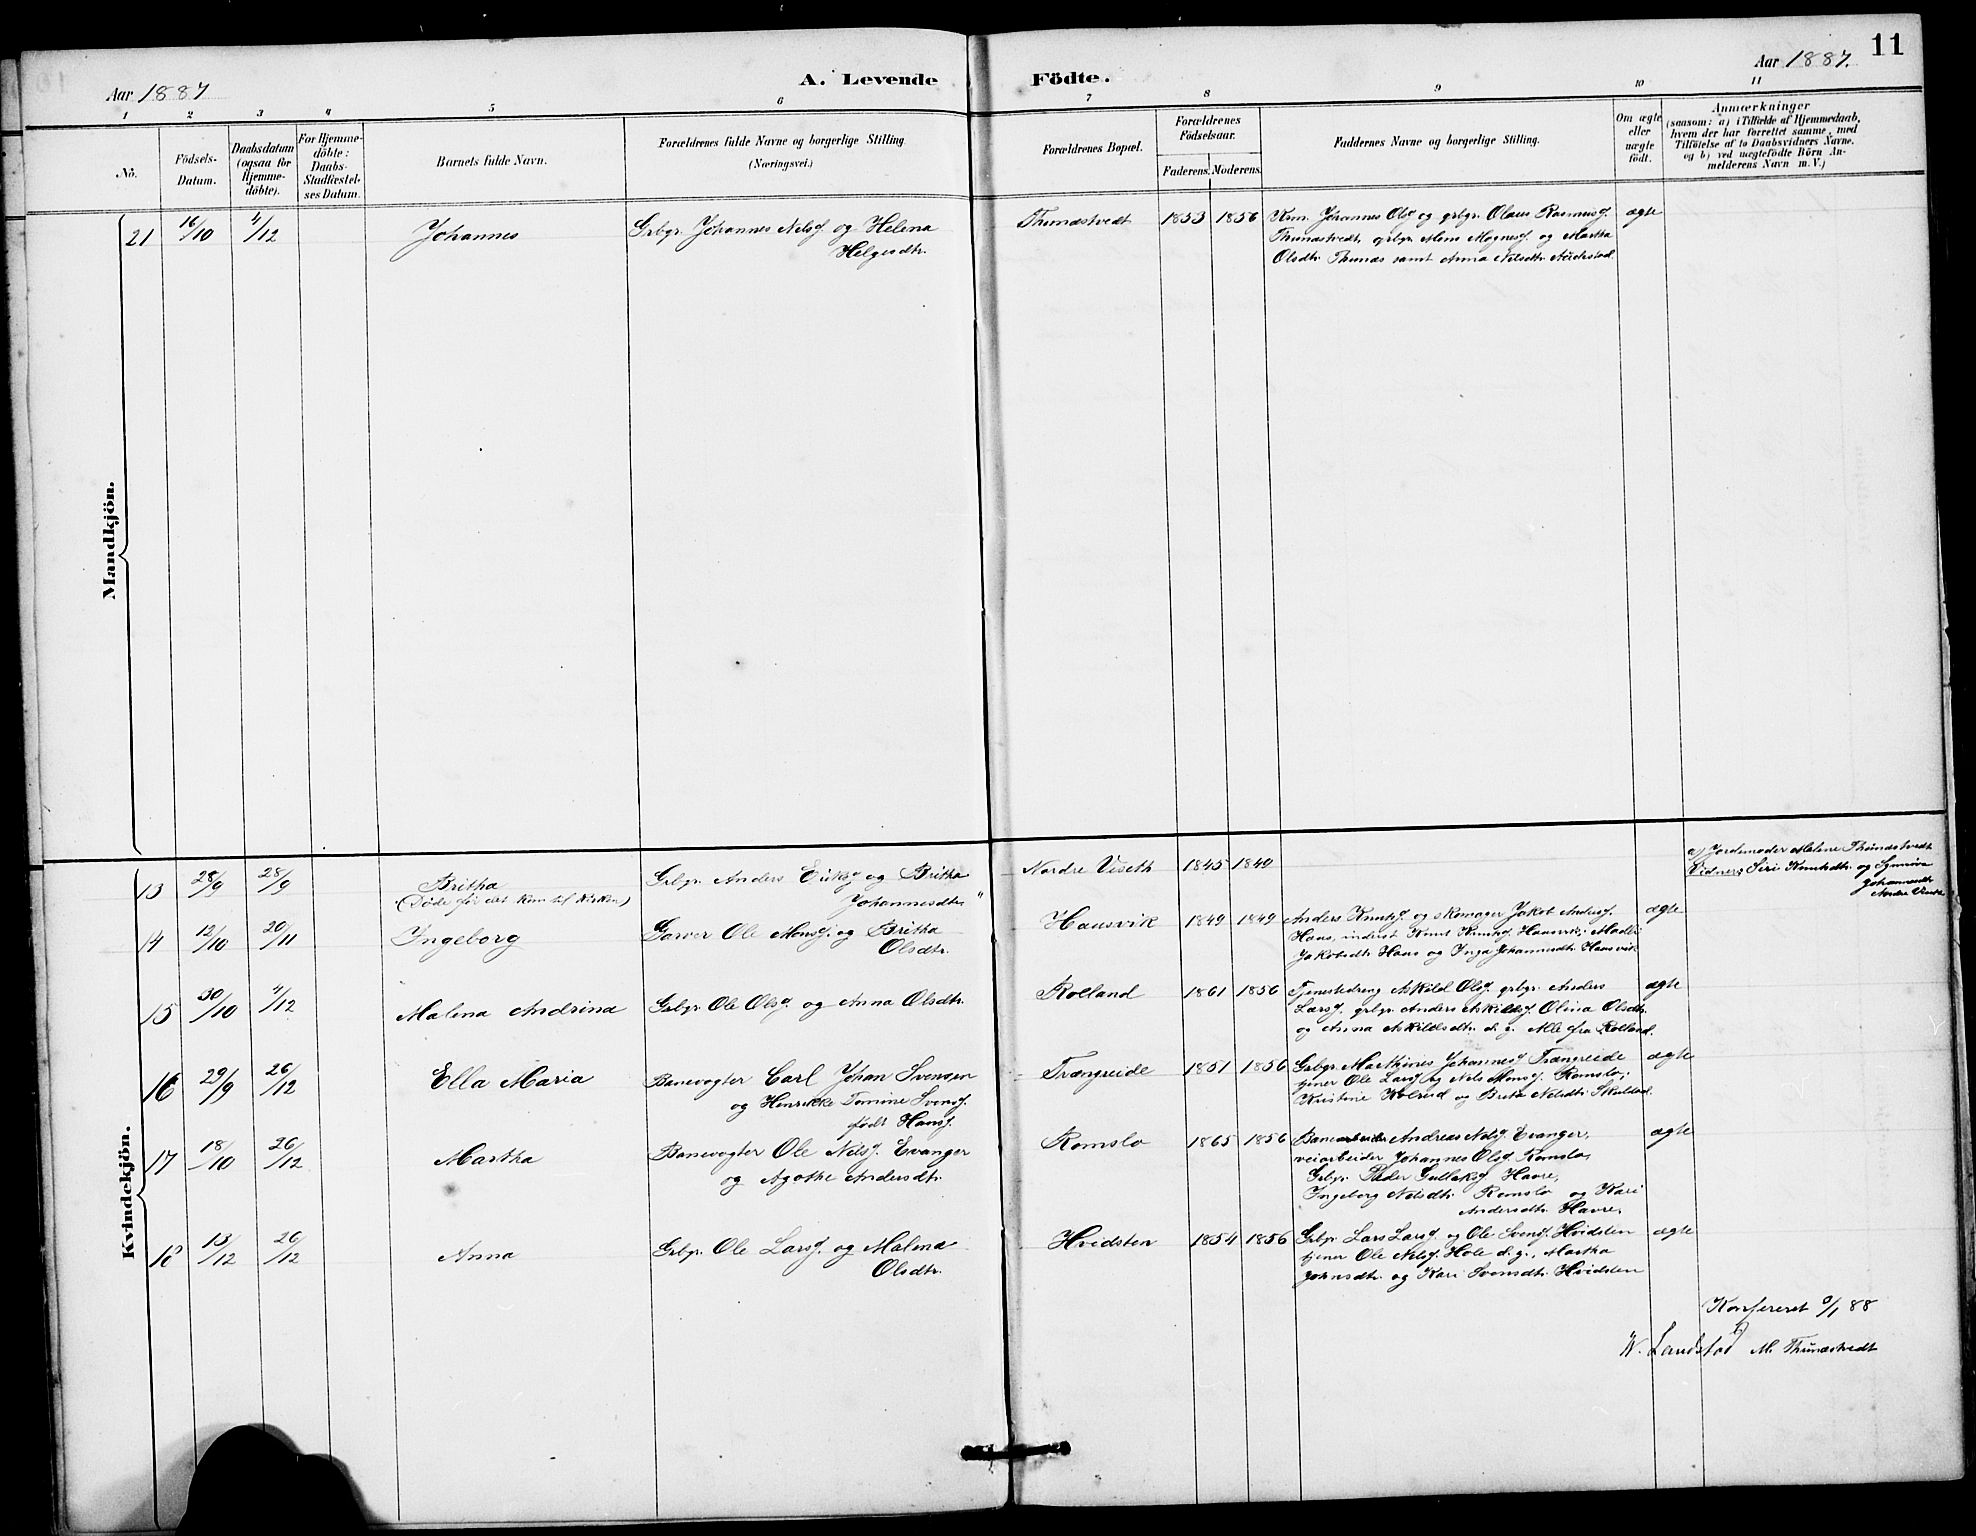 11
Aar 1887
A. Levende Födte.
Aar 1887.
1 2 3 4 5 6 7 8 9 10 11
Nö.
Födsels-
Datum.
Daabsdatum
(ogsaa for
Hjemme-
döbte).
For Hjemme-
döbte:
Daabs-
Stadfæstel-
ses Datum.
Barnets fulde Navn.
Forældrenes fulde Navne og borgerlige Stilling
(Næringsvei.)
Forældrenes Bopæl.
Forældrenes
Födselsaar.
Faderens. Moderens.
Faddernes Navne og borgerlige Stilling.
Om ægte
eller
uægte
födt.
Anmærkninger
(saasom: a) i Tilfælde af Hjemmedaab,
hvem der har forrettet samme, med
Tilföielse af to Daabsvidners Navne,
og b) ved uægtefödte Börn An-
melderens Navn m. V.)
Mandkjön.
21 16/10 4/12 Johannes Grbgr. Johannes Nelsf og Helena
Helgesdtr.
Thunæstvedt 1853 1856
Krm. Johannes Olsf og grbgr. Olaus Rasmusf.
Thunæstvedt, grbgr. Mons Mognesf. og Martha
Olsdtr. Thunæs samt Anna Nelsdtr.
ægte
Kvindekjön.
13 28/9 28/9 Britha
(Döde för det kom til Kirken)
Grbgr. Anders Eriksf og Britha
Johannesdtr.
Nordre Viseth 1845 1849
a) Jordemoder Malene Thunæstvedt
Vidner: Siri Knutsdtr. og Synneva
Johannesdtr.
Nordre Viseth
14 12/10 20/11 Ingeborg Garver Ole Monsf. og Britha
Olsdtr.
Hausvik 1849 1849
Anders Knutsf. og skomager Jakob Andersf.
Haus, inderst Knut Knutsf. Hausvik,
Jakobsdtr. Haus og Inga Johannesdtr. Hausvik
ægte
15 30/10 4/12 Malena Andrina Grbgr. Ole Olsf. og Anna Olsdtr.
Rolland 1861 1856
Tjenestedreng Askild Olsf. grbgr. Anders
Larsf. grbgr. Anders Askildsf. Olina Olsdtr.
og Anna Askildsdtr. d. g. Alle fra Rolland.
ægte
16 29/9 26/12 Ella Maria Banevogter Carl Johan Svensen
og Henrikke Tomine Svensf.
født Hansf.
Trængreide 1851 1856
Grbgr. Marthines Johannesf Trængreide
tjener Ole Larsf og Nels Monsf. Romslo,
Kristine Kolsrud og Brita Nelsdtr. Skulstad.
ægte
17 18/10 26/12 Martha Banevogter Ole Nelsf. Evanger
og Agathe Andersdtr.
Romslo 1865 1856
Banearbeider Andreas Nelsf. Evanger,
veiarbeider Johannes Olsf. Romslo,
Grbgr. Peder Gullaksf Havre,
Ingeborg Nelsdtr. Romslo og Kari
Andersdtr. Havre,
ægte
18 13/12 26/12 Anna Grbgr. Ole Larsf. og Malena
Olsdtr.
Hvidsten 1854 1856
Grbgr. Lars Larsf. og Ole Svensf. Hvidsten
tjener Ole Nelsf. Hole d. g., Martha
Johnsdtr. og Kari Svensdtr. Hvidsten
ægte
Konfereret 9/1 88
W. Landstad M. Thunæstvedt